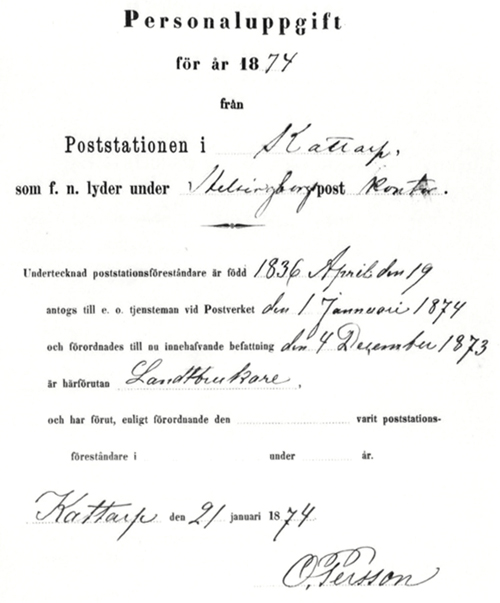 Personaluppgift
för år 1874
från
Poststationen i Kattarp.
som f. n. lyder under Helsingborgs post kontor.
Undertecknad poststationsföreståndare är född 1836 April den 19
antogs till e. o. tjensteman vid Postverket den 1 Jannuari 1874
och förordnades till nu innehafvande befattning den 4 December 1873
är härförutan Landtbrukare.
och har förut, enligt förordnande den varit poststations-
föreståndare i under år.
Kattarp den 21 januari 1874
O. Persson